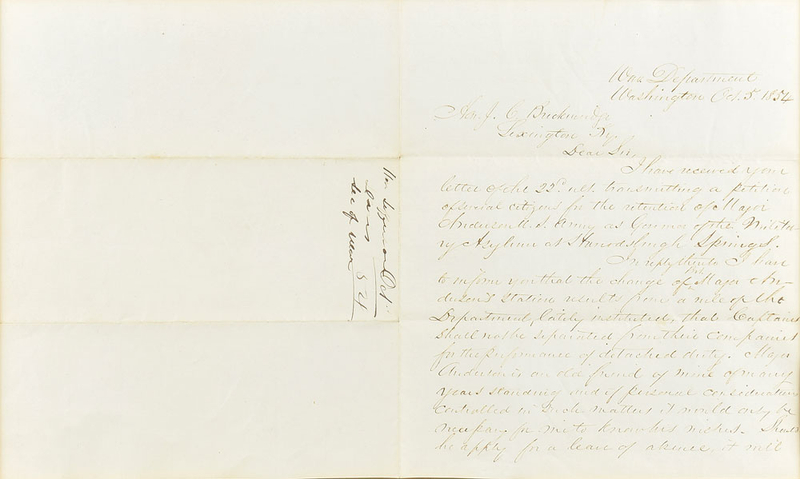 War Department
Washington Oct. 5 1854
Hon. J. C. Breckinridge
Lexington Ky.
Dear Sir,
I have received your
letter of the 22d ult. transmitting a petition
of several citizens for the retention of Major
Anderson U. S. Army as Governor of the Milita-
ry Asylum at Harrodsburgh Springs.
In reply thereto I have
to inform you that the change of Major An-
derson's station results from a rule of the
Department, lately instituted, that Captains
shall not be separated from their companies
for the performance of detached duty. Major
Anderson is an old friend of mine of many
years standing and if personal considerations
controlled in such matters it would only be
necessary for me to know his wishes. Should
he apply for a leave of absence, it will
Hon Jefferson
Davis
Sec of War
Oct
54